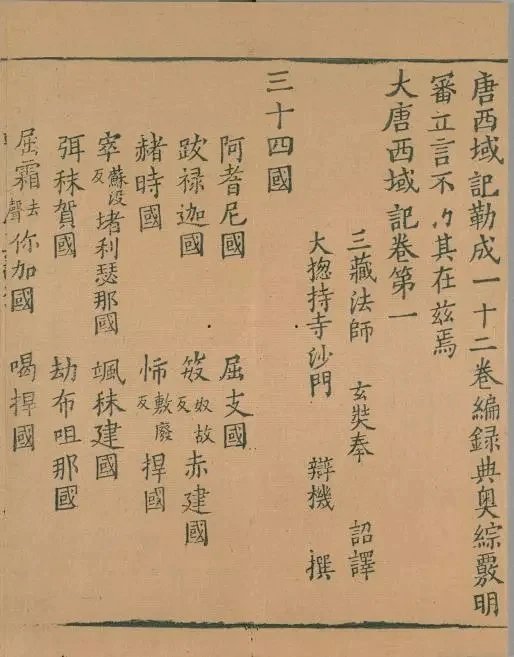 唐西域記勒成一十二卷編録典奥綜覈明
審立言不其在兹焉
大唐西域記卷第一
三藏法師 玄奘奉 詔譯
大揔持寺沙門 辯機 撰
三十四國
阿耆尼國 屈支國
跋禄迦國 笯奴故反赤建國
赭時國 㤄敷廢反捍國
窣蘇没反堵利瑟那國 颯秣建國
弭秣賀國 劫布呾那國
屈霜去聲你加國 喝捍國